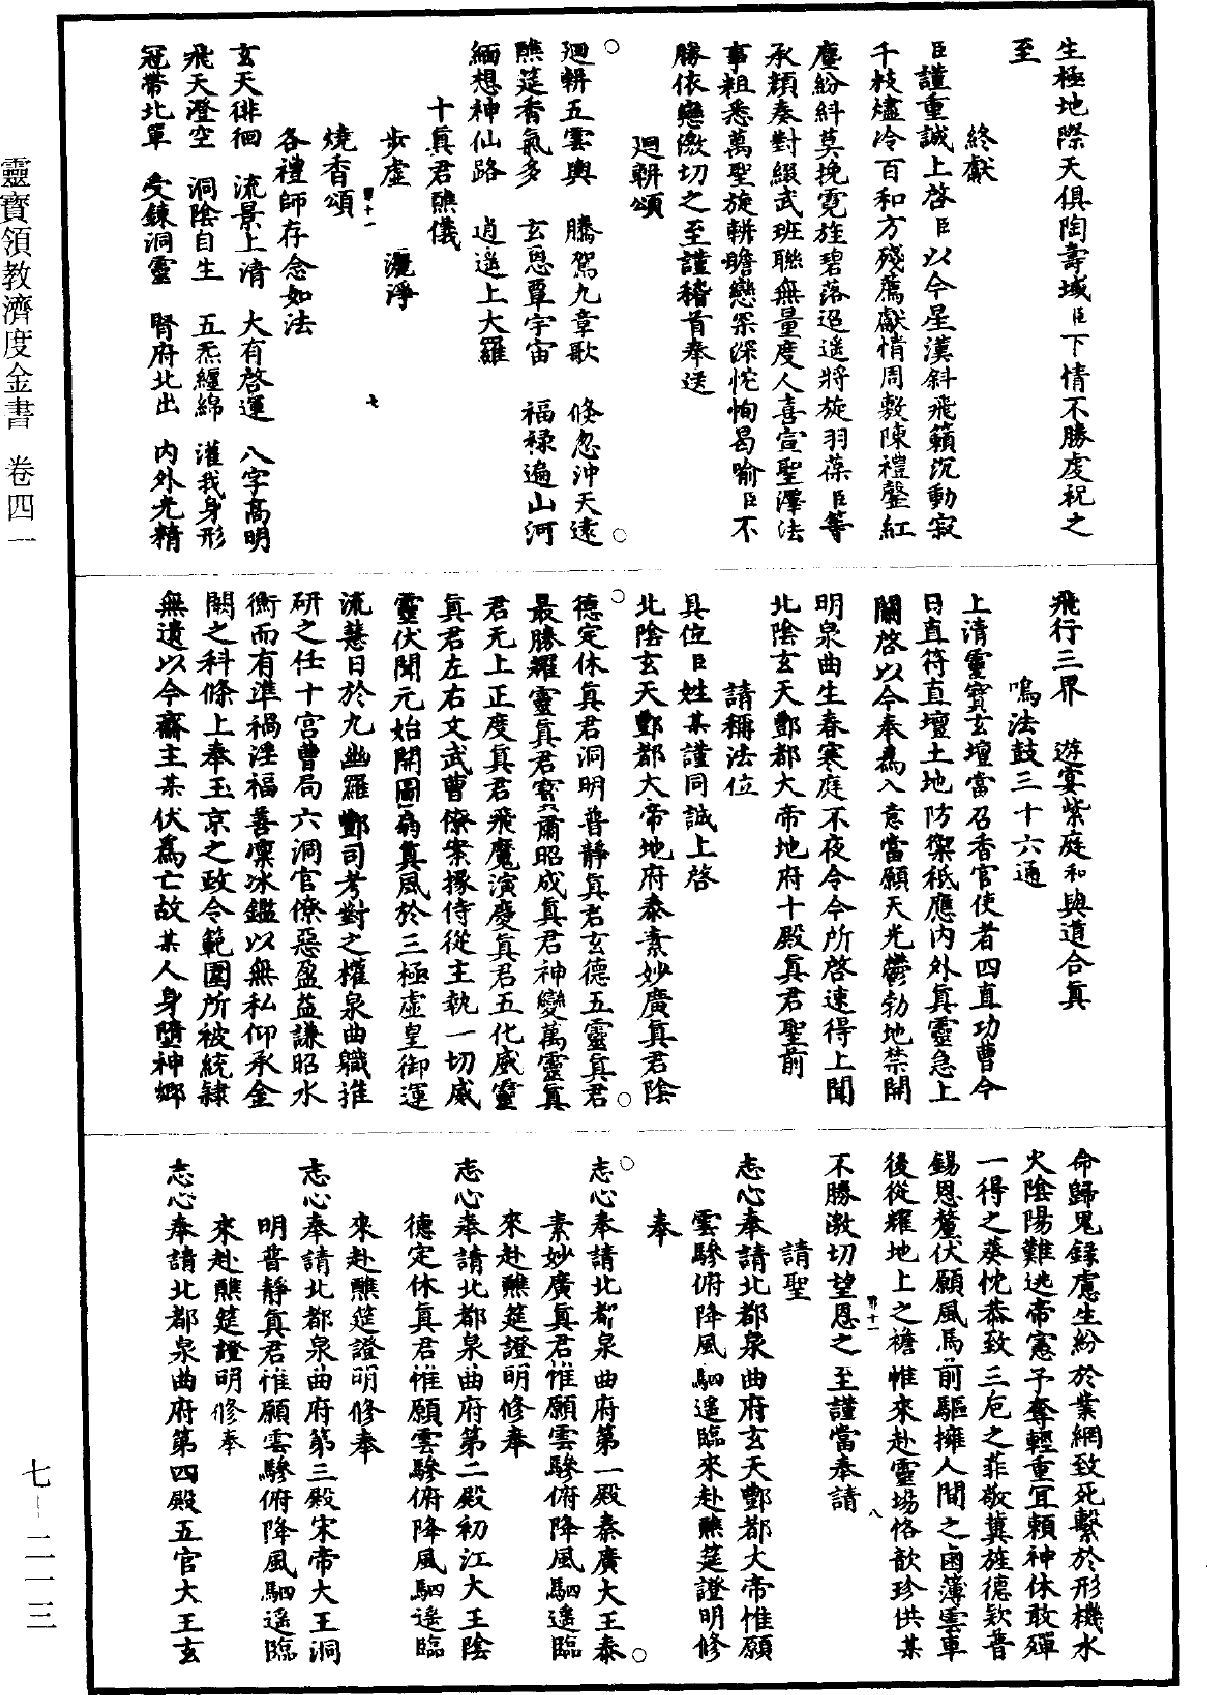 生極地際天俱陶壽域臣下情不勝虔祝之
至
終獻
臣謹重誠上啓臣以今星漢斜飛籟沉動寂
千枝燼冷百和方殘薦獻情周敷陳禮罄紅
塵紛糾莫挽霓旌碧落迢遥將旋羽葆臣等
承顏奏對綴武班聯無量度人喜宣聖澤法
事粗悉萬聖旋輧瞻戀深悾恂曷喻臣不
勝依戀激切之至謹稽首奉送
迴輧頌
迴輧五雲輿 騰駕九章歌 倐忽沖天遠
醮筵香氣多 玄恩覃宇宙 福禄遍山河
緬想神仙路 逍遥上大羅
十真君醮儀
步虛 灑淨
燒香頌
各禮師存念如法
玄天徘徊 流景上清 大有啓運 八字高明
飛天澄空 洞陰自生 五炁纏綿 灌我身形
冠帶北單 受鍊洞靈 腎府北出 内外光精
飛行三界 遊宴紫庭 和與道合真
鳴法鼓三十六通
上清靈寳玄壇當召香官使者四直功曹今
日直符直壇土地防禦祗應内外真靈急上
關啓以今奉爲入意當願天光鬱勃地禁開
明泉曲生春寒庭不夜令今所啓速得上聞
北陰玄天酆都大帝地府十殿真君聖前
請稱法位
具位臣姓某謹同誠上啓
北陰玄天酆都大帝地府泰素妙廣真君陰
德定休真君洞明普靜真君玄德五靈真君
最勝耀靈真君寳肅昭成真君神變萬靈真
君无上正度真君飛魔演慶真君五化威靈
真君左右文武曹僚案掾侍從主執一切威
靈伏聞元始開圖扇真風於三極虛皇御運
流慧日於九幽羅酆司考對之權泉曲職推
研之任十宫曹局六洞官僚惡盈益謙昭水
衡而有準禍淫福善凜冰鑑以無私仰承金
闕之科條上奉玉京之政令範圍所被統隸
無遺以今齋主某伏爲亡故某人身墮神鄉
命歸鬼録慮生紛於業網致死繫於形機水
火陰陽難逃帝憲予奪輕重冝賴神休敢殫
一得之葵忱恭致三巵之菲敬冀旌德欵普
錫恩釐伏願風馬前驅擁人間之鹵簿雲車
後從耀地上之襜帷來赴靈場恪歆珍供某
不勝激切望恩之至謹當奉請
請聖
志心奉請北都泉曲府玄天酆都大帝惟願
雲驂俯降風駟遥臨來赴醮筵證明修
奉
志心奉請北都泉曲府第一殿秦廣大王泰
素妙廣真君惟願雲驂俯降風駟遥臨
來赴醮筵證明修奉
志心奉請北都泉曲府第二殿初江大王陰
德定休真君惟願雲驂俯降風駟遥臨
來赴醮筵證明修奉
志心奉請北都泉曲府第三殿宋帝大王洞
明普靜真君惟願雲驂俯降風駟遥臨
來赴醮筵證明修奉
志心奉請北都泉曲府第四殿五官大王玄
靈寶領教濟度金書 卷四一
七—二一一三